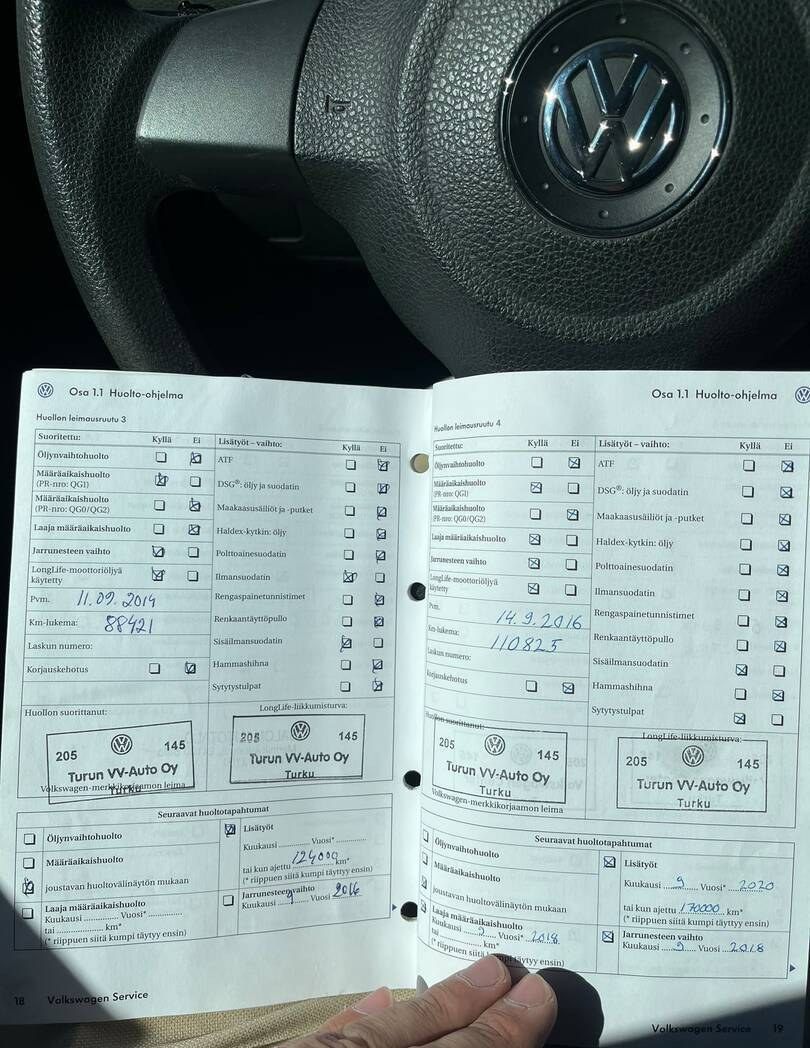 Osa 1.1 Huolto-ohjelma
Huollon leimausruutu 3
Suoritettu: Kyllä Ei
Öljynvaihtohuolto
Määräaikaishuolto
(PR-nro: QG1)
Määräaikaishuolto
(PR-nro: QG0/QG2)
Laaja määräaikaishuolto
Jarrunesteen vaihto
LongLife-moottoriöljyä
käytetty
Pvm. 11.09.2014
Km-lukema: 88421
Laskun numero:
Korjauskehotus
Lisätyöt – vaihto: Kyllä Ei
ATF
DSG®: öljy ja suodatin
Maakaasusäiliöt ja -putket
Haldex-kytkin: öljy
Polttoainesuodatin
Ilmansuodatin
Rengaspainetunnistimet
Renkaantäyttöpullo
Sisäilmansuodatin
Hammashihna
Sytytystulpat
Huollon suorittanut:
205 145
Turun VV-Auto Oy
Turku
Volkswagen-merkkikorjaamon leima
LongLife-liikkumisturva:
205 145
Turun VV-Auto Oy
Turku
Seuraavat huoltotapahtumat
Öljynvaihtohuolto
Määräaikaishuolto
joustavan huoltovälinäytön mukaan
Laaja määräaikaishuolto
Kuukausi ............ Vuosi* ................
tai ................ km*
(* riippuen siitä kumpi täytyy ensin)
Lisätyöt
Kuukausi ............ Vuosi* ................
tai kun ajettu 124000 km*
(* riippuen siitä kumpi täytyy ensin)
Jarrunesteen vaihto
Kuukausi 9 Vuosi 2016
18 Volkswagen Service
Osa 1.1 Huolto-ohjelma
Huollon leimausruutu 4
Suoritettu: Kyllä Ei
Öljynvaihtohuolto
Määräaikaishuolto
(PR-nro: QG1)
Määräaikaishuolto
(PR-nro: QG0/QG2)
Laaja määräaikaishuolto
Jarrunesteen vaihto
LongLife-moottoriöljyä
käytetty
Pvm. 14.9.2016
Km-lukema: 110825
Laskun numero:
Korjauskehotus
Lisätyöt – vaihto: Kyllä Ei
ATF
DSG®: öljy ja suodatin
Maakaasusäiliöt ja -putket
Haldex-kytkin: öljy
Polttoainesuodatin
Ilmansuodatin
Rengaspainetunnistimet
Renkaantäyttöpullo
Sisäilmansuodatin
Hammashihna
Sytytystulpat
Huollon suorittanut:
205 145
Turun VV-Auto Oy
Turku
Volkswagen-merkkikorjaamon leima
LongLife-liikkumisturva:
205 145
Turun VV-Auto Oy
Turku
Seuraavat huoltotapahtumat
Öljynvaihtohuolto
Määräaikaishuolto
joustavan huoltovälinäytön mukaan
Laaja määräaikaishuolto
Kuukausi 9 Vuosi* 2018
tai ................ km*
(* riippuen siitä kumpi täytyy ensin)
Lisätyöt
Kuukausi 9 Vuosi* 2020
tai kun ajettu 170000 km*
(* riippuen siitä kumpi täytyy ensin)
Jarrunesteen vaihto
Kuukausi 9 Vuosi 2018
Volkswagen Service 19